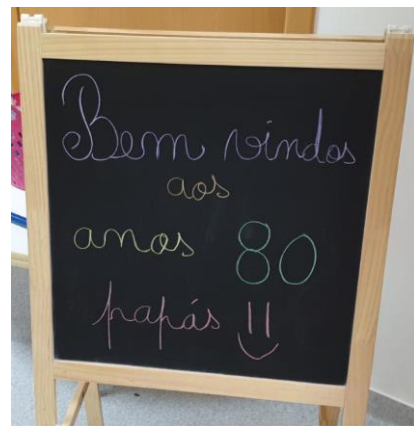 Bem vindos
aos
anos 80
papás !!